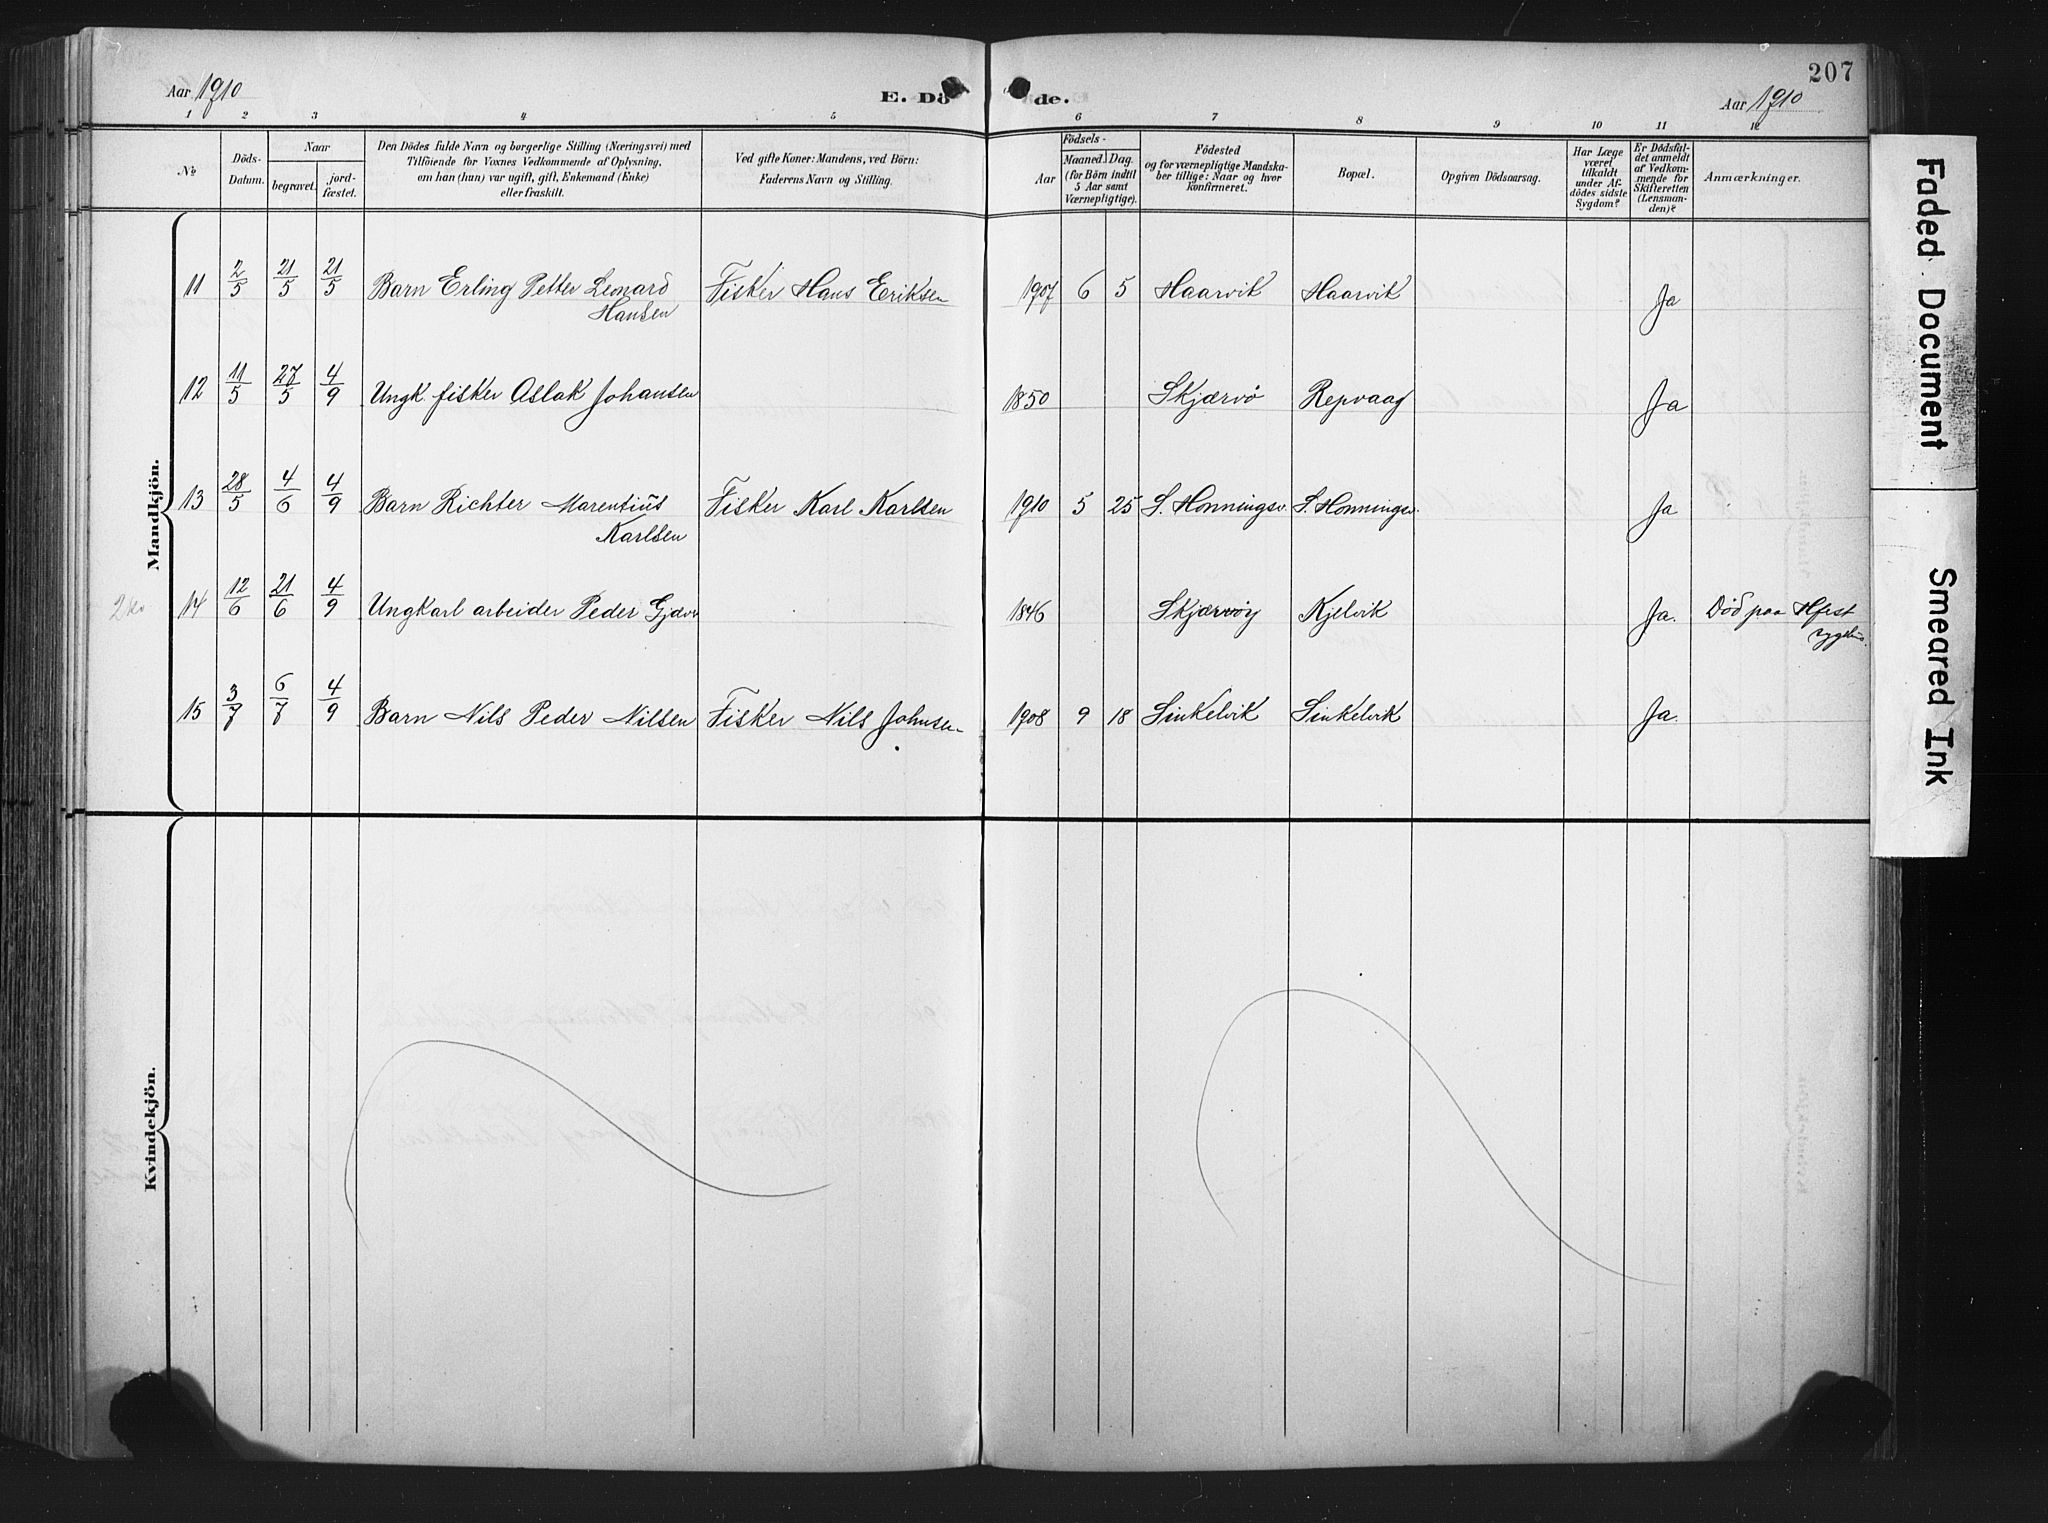 207
Aar 1910
E. Dö de.
Aar 1910
1 2 3 4 5 6 7 8 9 10 11 12
№
Döds-Datum.
Naar
begravet.
jord-fæstet.
Den Dödes fulde Navn og borgerlige Stilling (Næringsvei) med
Tilföiende for Voxnes Vedkommende af Oplysning,
om han (hun) var ugift, gift, Enkemand (Enke)
eller fraskilt.
Ved gifte Koner: Mandens, ved Börn:
Faderens Navn og Stilling.
Födsels-
Aar
Maaned. Dag.
(for Börn indtil
5 Aar samt
Værnepligtige).
Födested
og for værnepligtige Mandska-
ber tillige: Naar og hvor
konfirmeret.
Bopæl.
Opgiven Dödsaarsag.
Har Læge
været
tilkaldt
under Af-
dödes sidste
Sygdom?
Er Dödsfal-
det anmeldt
af Vedkom-
mende for
Skifteretten
(Lensman-
den)?
Anmærkninger.
Mandkjön.
11 2/5 21/5 21/5 Barn Erling Petter Leonard Fisker Hans Eriksen 1907 6 5 Haarvik Haarvik Ja
Hansen
12 11/5 27/5 4/9 Ungk. fisker Aslak Johansen 1850 Skjærvø Repvaag Ja
13 28/5 4/6 4/9 Barn Richter Marentius Fisker Karl Karlsen 1910 5 25 S. Honningsv. S. Honningsv. Ja
Karlsen
14 12/6 21/6 4/9 Ungkarl arbeider Peder Gjæver 1846 Skjærvøy Kjelvik Ja. Død paa Hfest
sygehus.
15 3/7 6/7 4/9 Barn Nils Peder Nilsen Fisker Nils Johnsen 1908 9 18 Sinkelvik Sinkelvik Ja.
Kvindekjön.
Faded Document
Smeared Ink